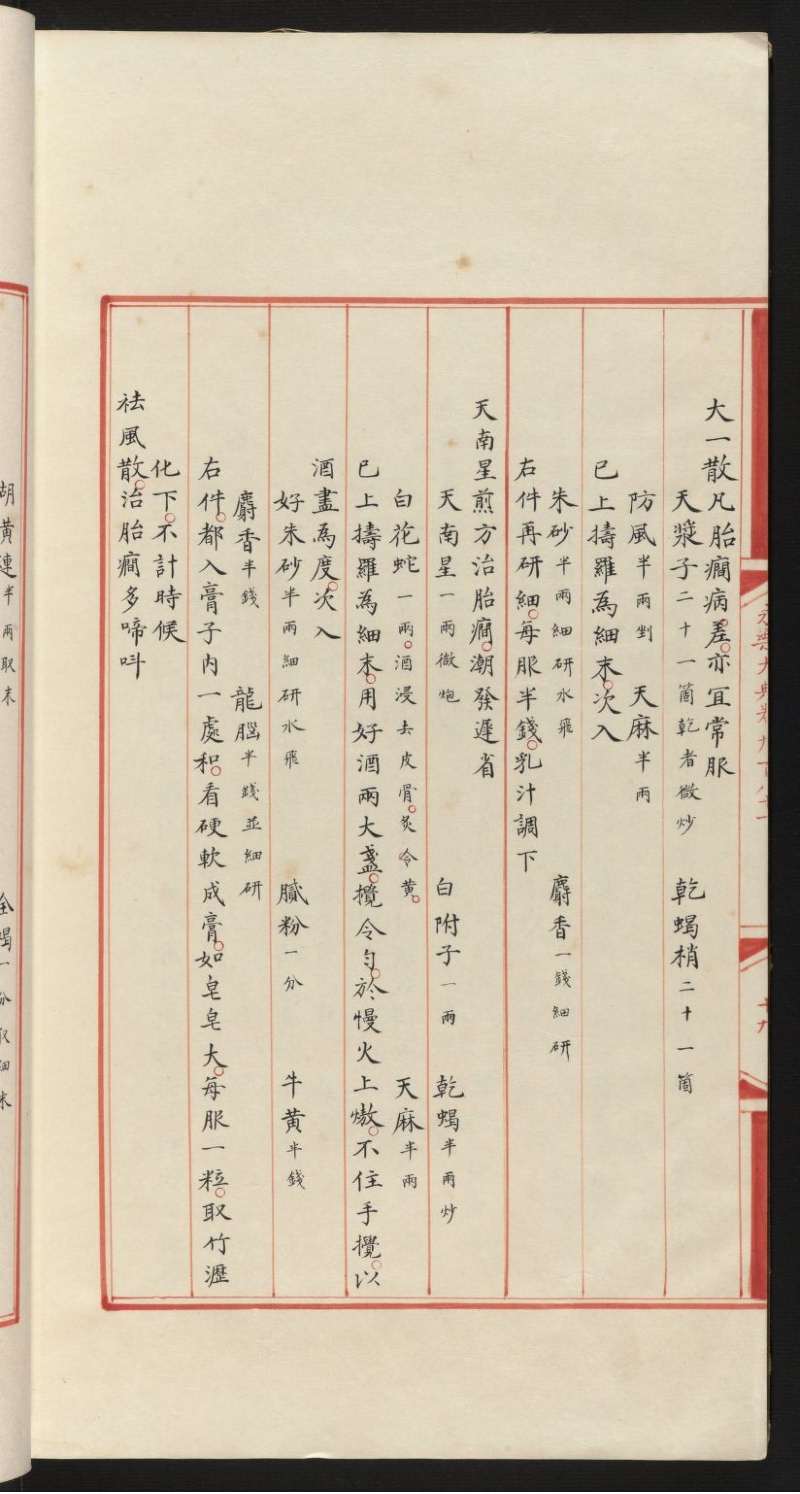 大一散凡胎癎病差亦宜常服
天漿子二十一箇乾者微炒 乾蝎梢二十一箇
防風半兩剉 天麻半兩
已上擣羅為細末次入
朱砂半兩細研水飛 麝香一錢細研
右件再研細每服半錢乳汁調下
天南星煎方治胎癎潮發遲省
天南星一兩微炮 白附子一兩 乾蝎半兩炒
白花蛇一兩酒浸去皮骨炙令黃 天麻半兩
已上擣羅為細末用好酒兩大盞攪令勻於慢火上熬不住手攪以
酒盡為度次入
好朱砂半兩細研水飛 膩粉一分 牛黃半錢
麝香半錢 龍腦半錢並細研
右件都入膏子內一處和看硬軟成膏如皂皂大每服一粒取竹瀝
化下不計時候
祛風散治胎癎多啼呌
胡黃連半兩取末 全蝎一分取細末